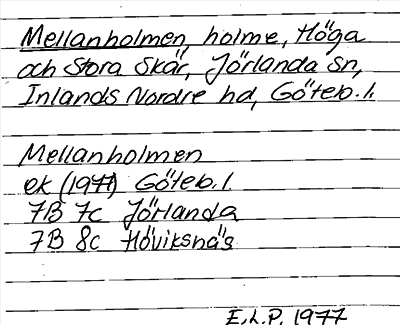 Mellanholmen, holme, Höga
och Stora Skär, Jörlanda sn,
Inlands Nordre hd, Göteb. l.
Mellanholmen
ek (1977) Göteb. l.
7B 7c Jörlanda
7B 8c Höviksnäs
E.L.P. 1977